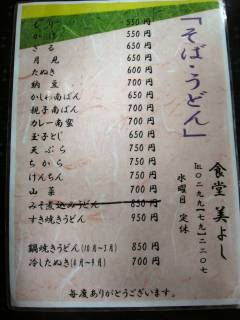 「そば・うどん」
もり 550円
かけ 550円
ざる 650円
月見 650円
たぬき 600円
納豆 700円
かしわ南ばん 650円
親子南ばん 700円
カレー南蛮 700円
玉子とじ 650円
天ぷら 750円
ちから 750円
けんちん 750円
山菜 700円
みそ煮込みうどん 850円
すき焼きうどん 950円
鍋焼うどん(10月〜3月) 850円
冷したぬき(4月〜9月) 700円
毎度ありがとうございます。
食堂 美よし
TEL 〇二九九(七九)二二〇七
水曜日 定休